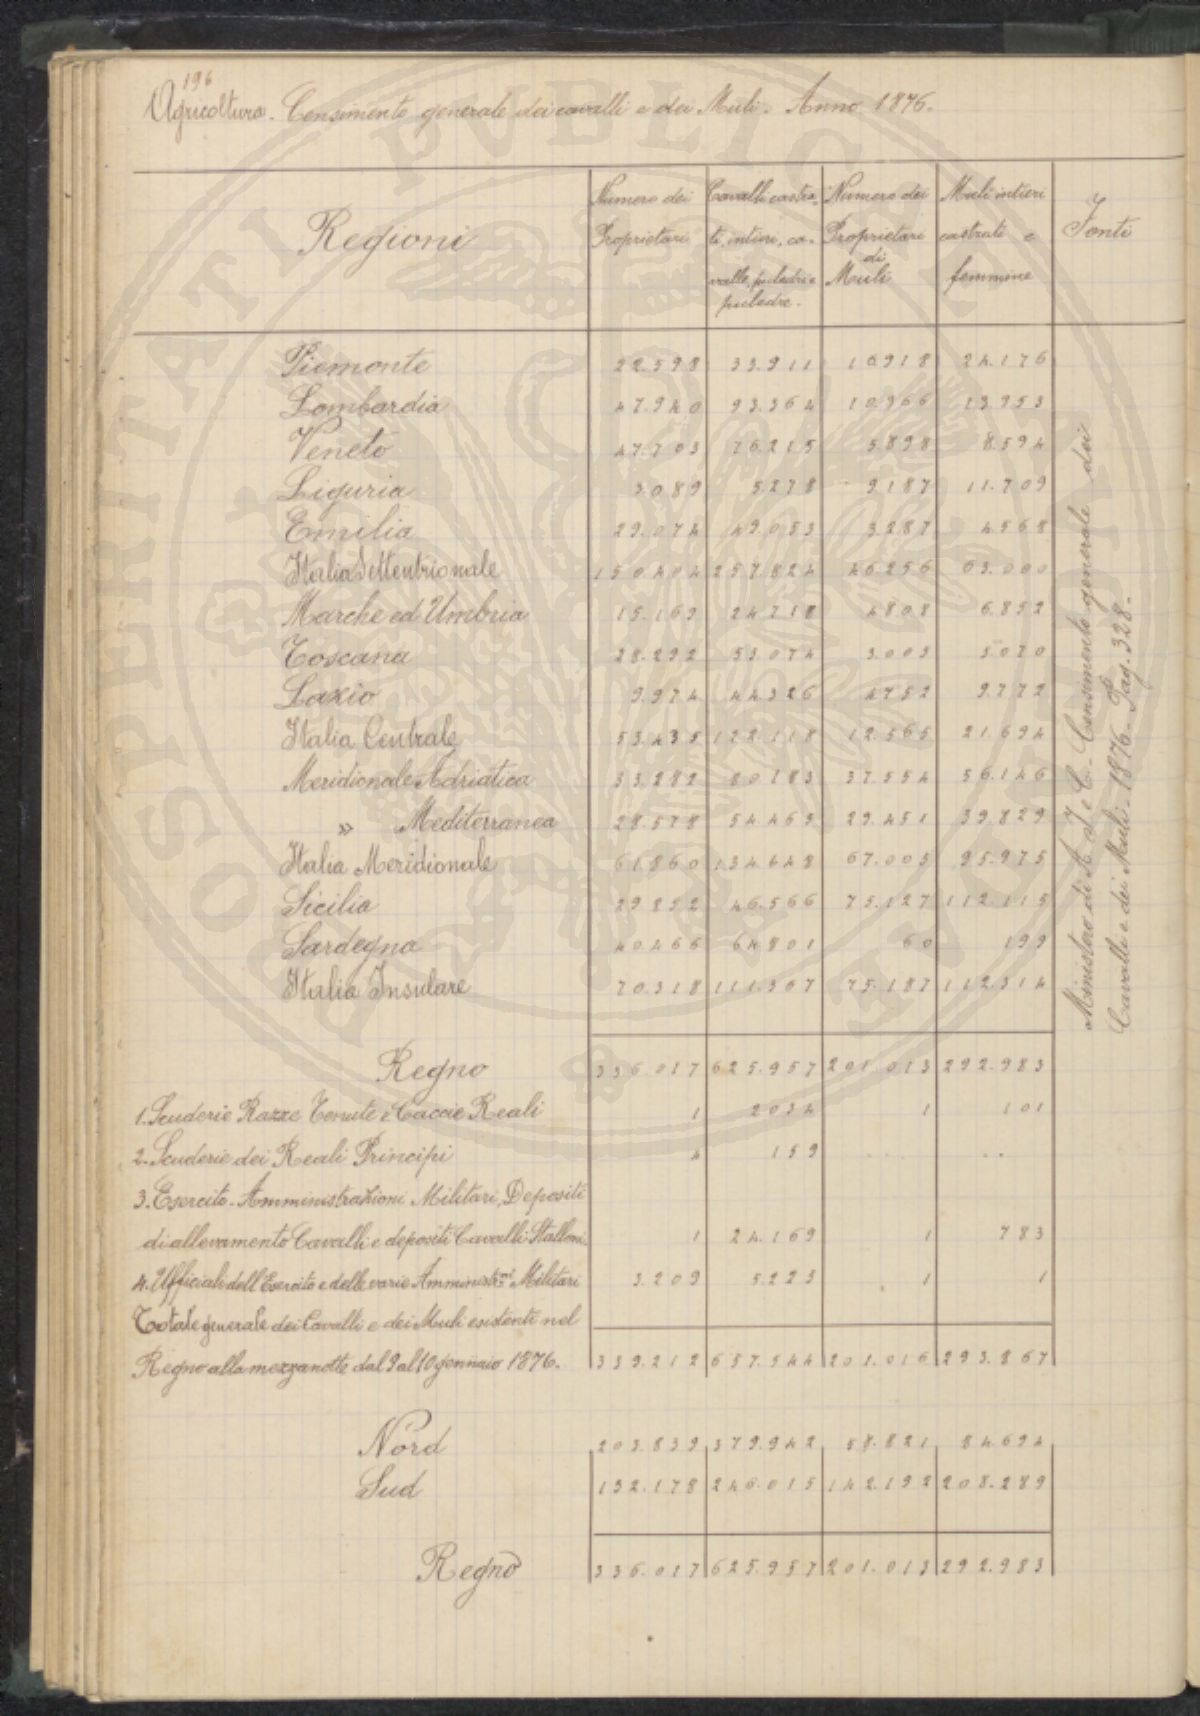 196
Agricoltura. Censimento generale dei cavalli e dei Muli. Anno 1876.
Regioni
Numero dei
Proprietari
Cavalli castra-
ti, intieri, ca-
valle, puledri e
puledre.
Numero dei
Proprietari
di
Muli
Muli intieri
castrati e
femmine
Fonti
Piemonte 22.598 33.911 16918 24.176
Lombardia 47.940 93.364 10.966 13953
Veneto 47.703 76.215 5.898 8.594
Liguria 3.089 5.278 9187 11.709
Emilia 29.074 49.053 3.287 4.568
Italia Settentrionale 150.404 257.824 46.256 63.000
Marche ed Umbria 15.169 24718 4808 6.852
Toscana 28.292 53.074 3.005 5.070
Lazio 9.974 44.326 4752 9.772
Italia Centrale 53.435 122.118 12.565 21.694
Meridionale Adriatica 33.282 80183 37.554 56.146
» Mediterranea 28.578 54.465 29.451 39.829
Italia Meridionale 61860 134.648 67.005 95.975
Sicilia 29852 46.566 75.127 112.115
Sardegna 40.466 64801 60 199
Italia Insulare 70.318 111.367 75.187 112.314
Regno 336.017 625.957 201.013 292.983
1. Scuderie Razze Tenute e Caccie Reali 1 2034 1 101
2. Scuderie dei Reali Principi 4 159 .. ..
3. Esercito - Amministrazioni Militari, Depositi
di allevamento Cavalli e depositi Cavalli Stalloni. 1 24.169 1 783
4. Ufficiali dell'Esercito e delle varie Amministr.ni Militari 3.209 5.225 1 1
Totale generale dei Cavalli e dei Muli esistenti nel
Regno alla mezzanotte dal 9 al 10 gennaio 1876. 339.212 657.544 201.016 293.867
Nord 203.839 379.942 58.821 84.694
Sud 132.178 246.015 142.192 208.289
Regno 336.017 625.957 201.013 292.983
Ministero di A. I. e C. - Censimento generale dei
Cavalli e dei Muli - 1876 - Pag. 328.